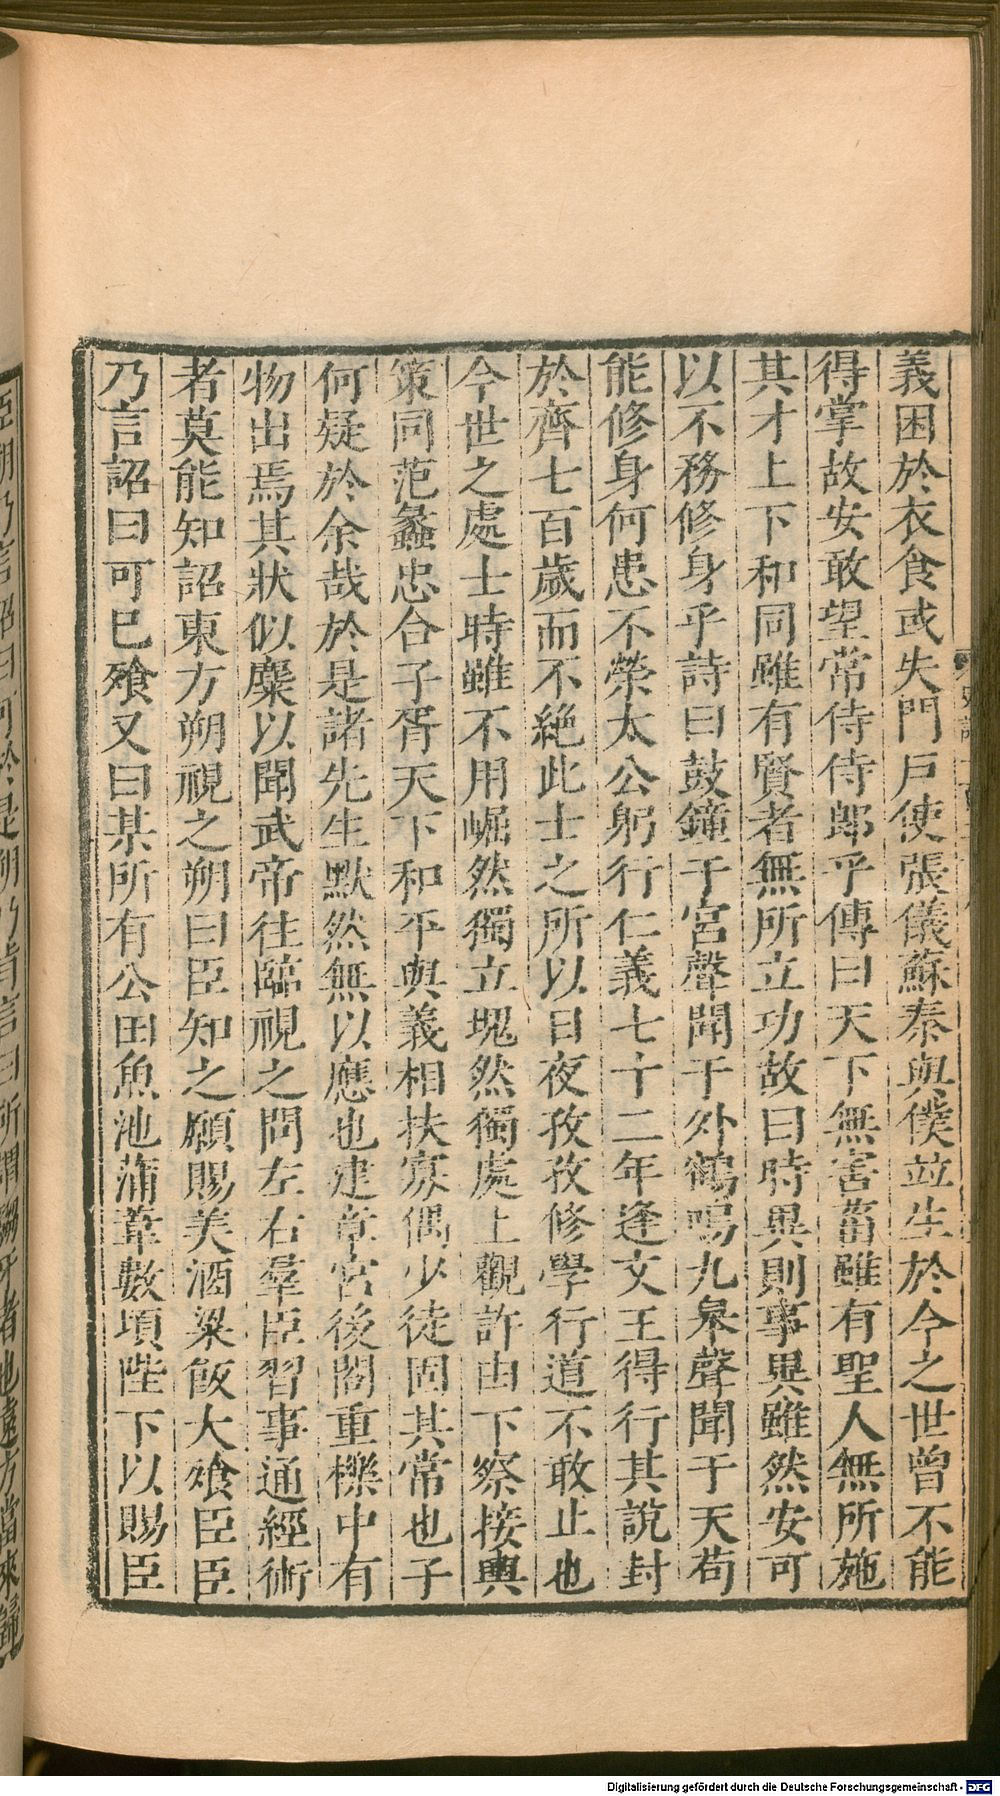 義困於衣食或失門戸使張儀蘇秦與僕竝生於今之世曾不能
得掌故安敢望常侍侍郎乎傳曰天下無害菑雖有聖人無所施
其才上下和同雖有賢者無所立功故曰時異則事異雖然安可
以不務修身乎詩曰鼓鐘于宮聲聞于外鶴鳴九皐聲聞于天苟
能修身何患不榮太公躬行仁義七十二年逢文王得行其說封
於齊七百歲而不絶此士之所以日夜孜孜修學行道不敢止也
今世之處士時雖不用崛然獨立塊然獨處上觀許由下察接輿
策同范蠡忠合子胥天下和平與義相扶寡偶少徒固其常也子
何疑於余哉於是諸先生默然無以應也建章宮後閤重櫟中有
物出焉其狀似麋以聞武帝往臨視之問左右羣臣習事通經術
者莫能知詔東方朔視之朔曰臣知之願賜美酒粱飯大飱臣臣
乃言詔曰可已飱又曰某所有公田魚池蒲葦數頃陛下以賜臣
臣朔乃言詔曰可於是朔乃肯言曰所謂騶牙者也遠方當來歸
Digitalisierung gefördert durch die Deutsche Forschungsgemeinschaft - DFG